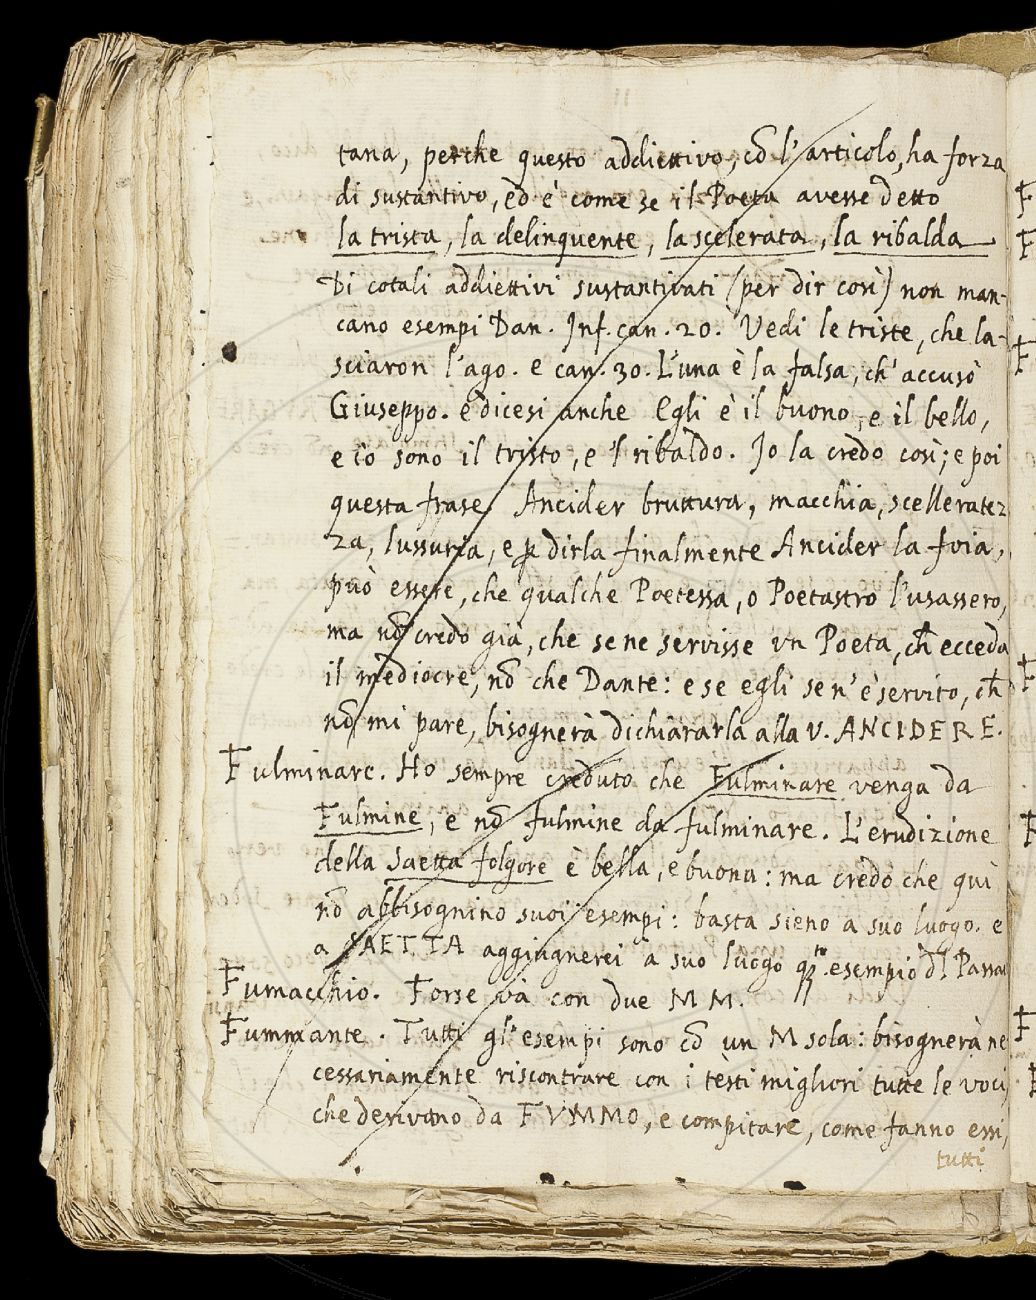 tana, perche questo addiettivo, cō l'articolo, ha forza
di sustantivo, ed è come se il Poeta avesse detto
la trista, la delinquente, la scelerata, la ribalda
Di cotali addiettivi sustantivati (per dir così) non man-
cano esempi Dan. Inf. can. 20. Vedi le triste, che la-
sciaron l'ago. e can. 30. L'una è la falsa, ch'accusò
Giuseppo. e dicesi anche Egli è il buono, e il bello,
e io sono il tristo, e 'l ribaldo. Io la credo così; e poi
questa frase Ancider bruttura, macchia, scelleratez
za, lussuria, e ꝑ dirla finalmente Ancider la foia,
può essere, che qualche Poetessa, o Poetastro l'usassero,
ma nō credo già, che se ne servisse vn Poeta, ch̄ ecceda
il mediocre, nō che Dante: e se egli se n'è servito, ch̄
nō mi pare, bisognerà dichiararla alla V. ANCIDERE.
Fulminare. Ho sempre creduto che Fulminare venga da
Fulmine, e nō fulmine da fulminare. L'erudizione
della Saetta folgore è bella, e buona: ma credo che quì
nō abbisognino suoi esempi: basta sieno a suo luogo. e
a SAETTA aggiugnerei a suo luogo qsto. esempio dl Passau
Fumacchio. Forse và con due MM.
Fummante. Tutti gl'esempi sono cō un M sola: bisognerà ne
cessariamente riscontrare con i testi migliori tutte le voci,
che derivano da FVMMO, e compitare, come fanno essi,
tutti